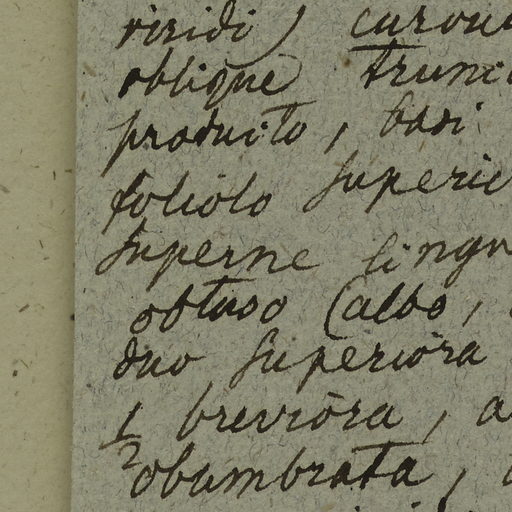 viridi) curou
oblique trunc
producto, basi
foliolo superio
superne lingu
obtuso (albo,
duo superiora
1/2 breviora, a
obumbrata,